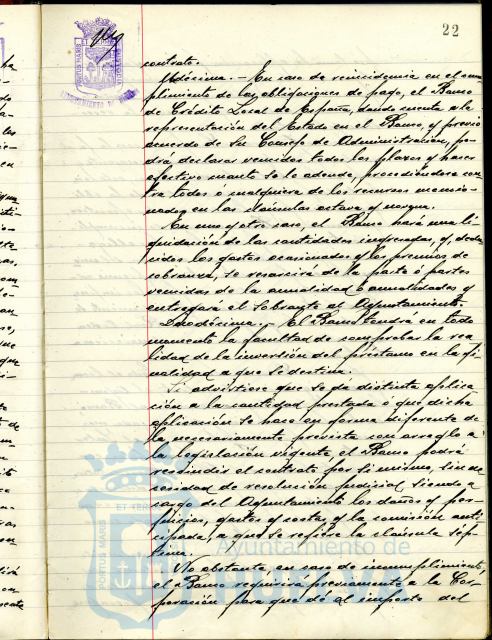 22
contrato.
Undécima.- En caso de reincidencia en el cum-
plimiento de las obligaciones de pago, el Banco
de Crédito Local de España, dando cuenta a la
representación del Estado en el Banco y previo
acuerdo de su Consejo de Administración, po-
drá declarar vencidos todos los plazos y hacer
efectivo cuanto se le adeude, procediendose con-
tra todos ó cualquiera de los recursos mencio-
nados en las cláusulas octava y novena.
En uno y otro caso, el Banco hará una li-
quidación de las cantidades ingresadas, y, dedu-
cidos los gastos ocasionados y los premios de
cobranza, se resarcirá de la parte ó partes
vencidas de la anualidad ó anualidades y
entregará el sobrante al Ayuntamiento.
Duodécima.- El Banco tendrá en todo
momento la facultad de comprobar la rea-
lidad de la inversión del préstamo en la fi-
nalidad a que se destina.
Si advirtiese que se da distinta aplica-
ción a la cantidad prestada ó que dicha
aplicación se hace en forma diferente de
la necesariamente prevista con arreglo a
la legislación vigente, el Banco podrá
rescindir el contrato por si mismo, sin ne-
cesidad de resolución judicial, siendo a
cargo del Ayuntamiento los daños y per-
juicios, gastos y costas y la comisión anti-
cipada, a que se refiere la cláusula sép-
tima.
No obstante, en caso de incumplimiento,
el Banco requirirá previamente a la Cor-
poración para que dé al importe del
Ayuntamiento de
PORTUS MARIS